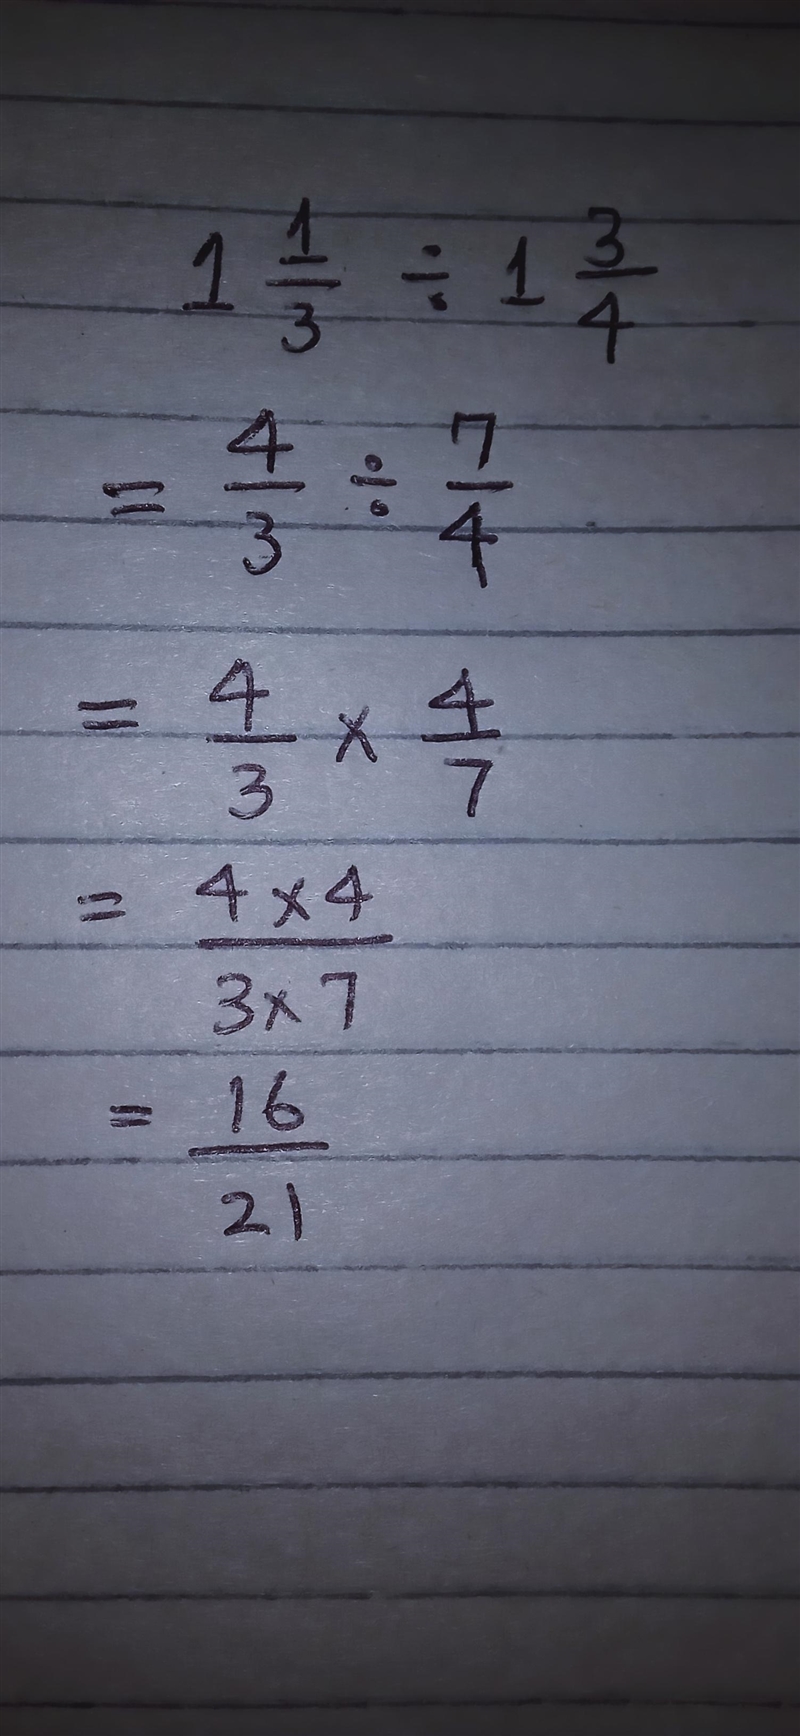 1 1/3 ÷ 1 3/4
= 4/3 ÷ 7/4
= 4/3 × 4/7
= 4×4/3×7
= 16/21